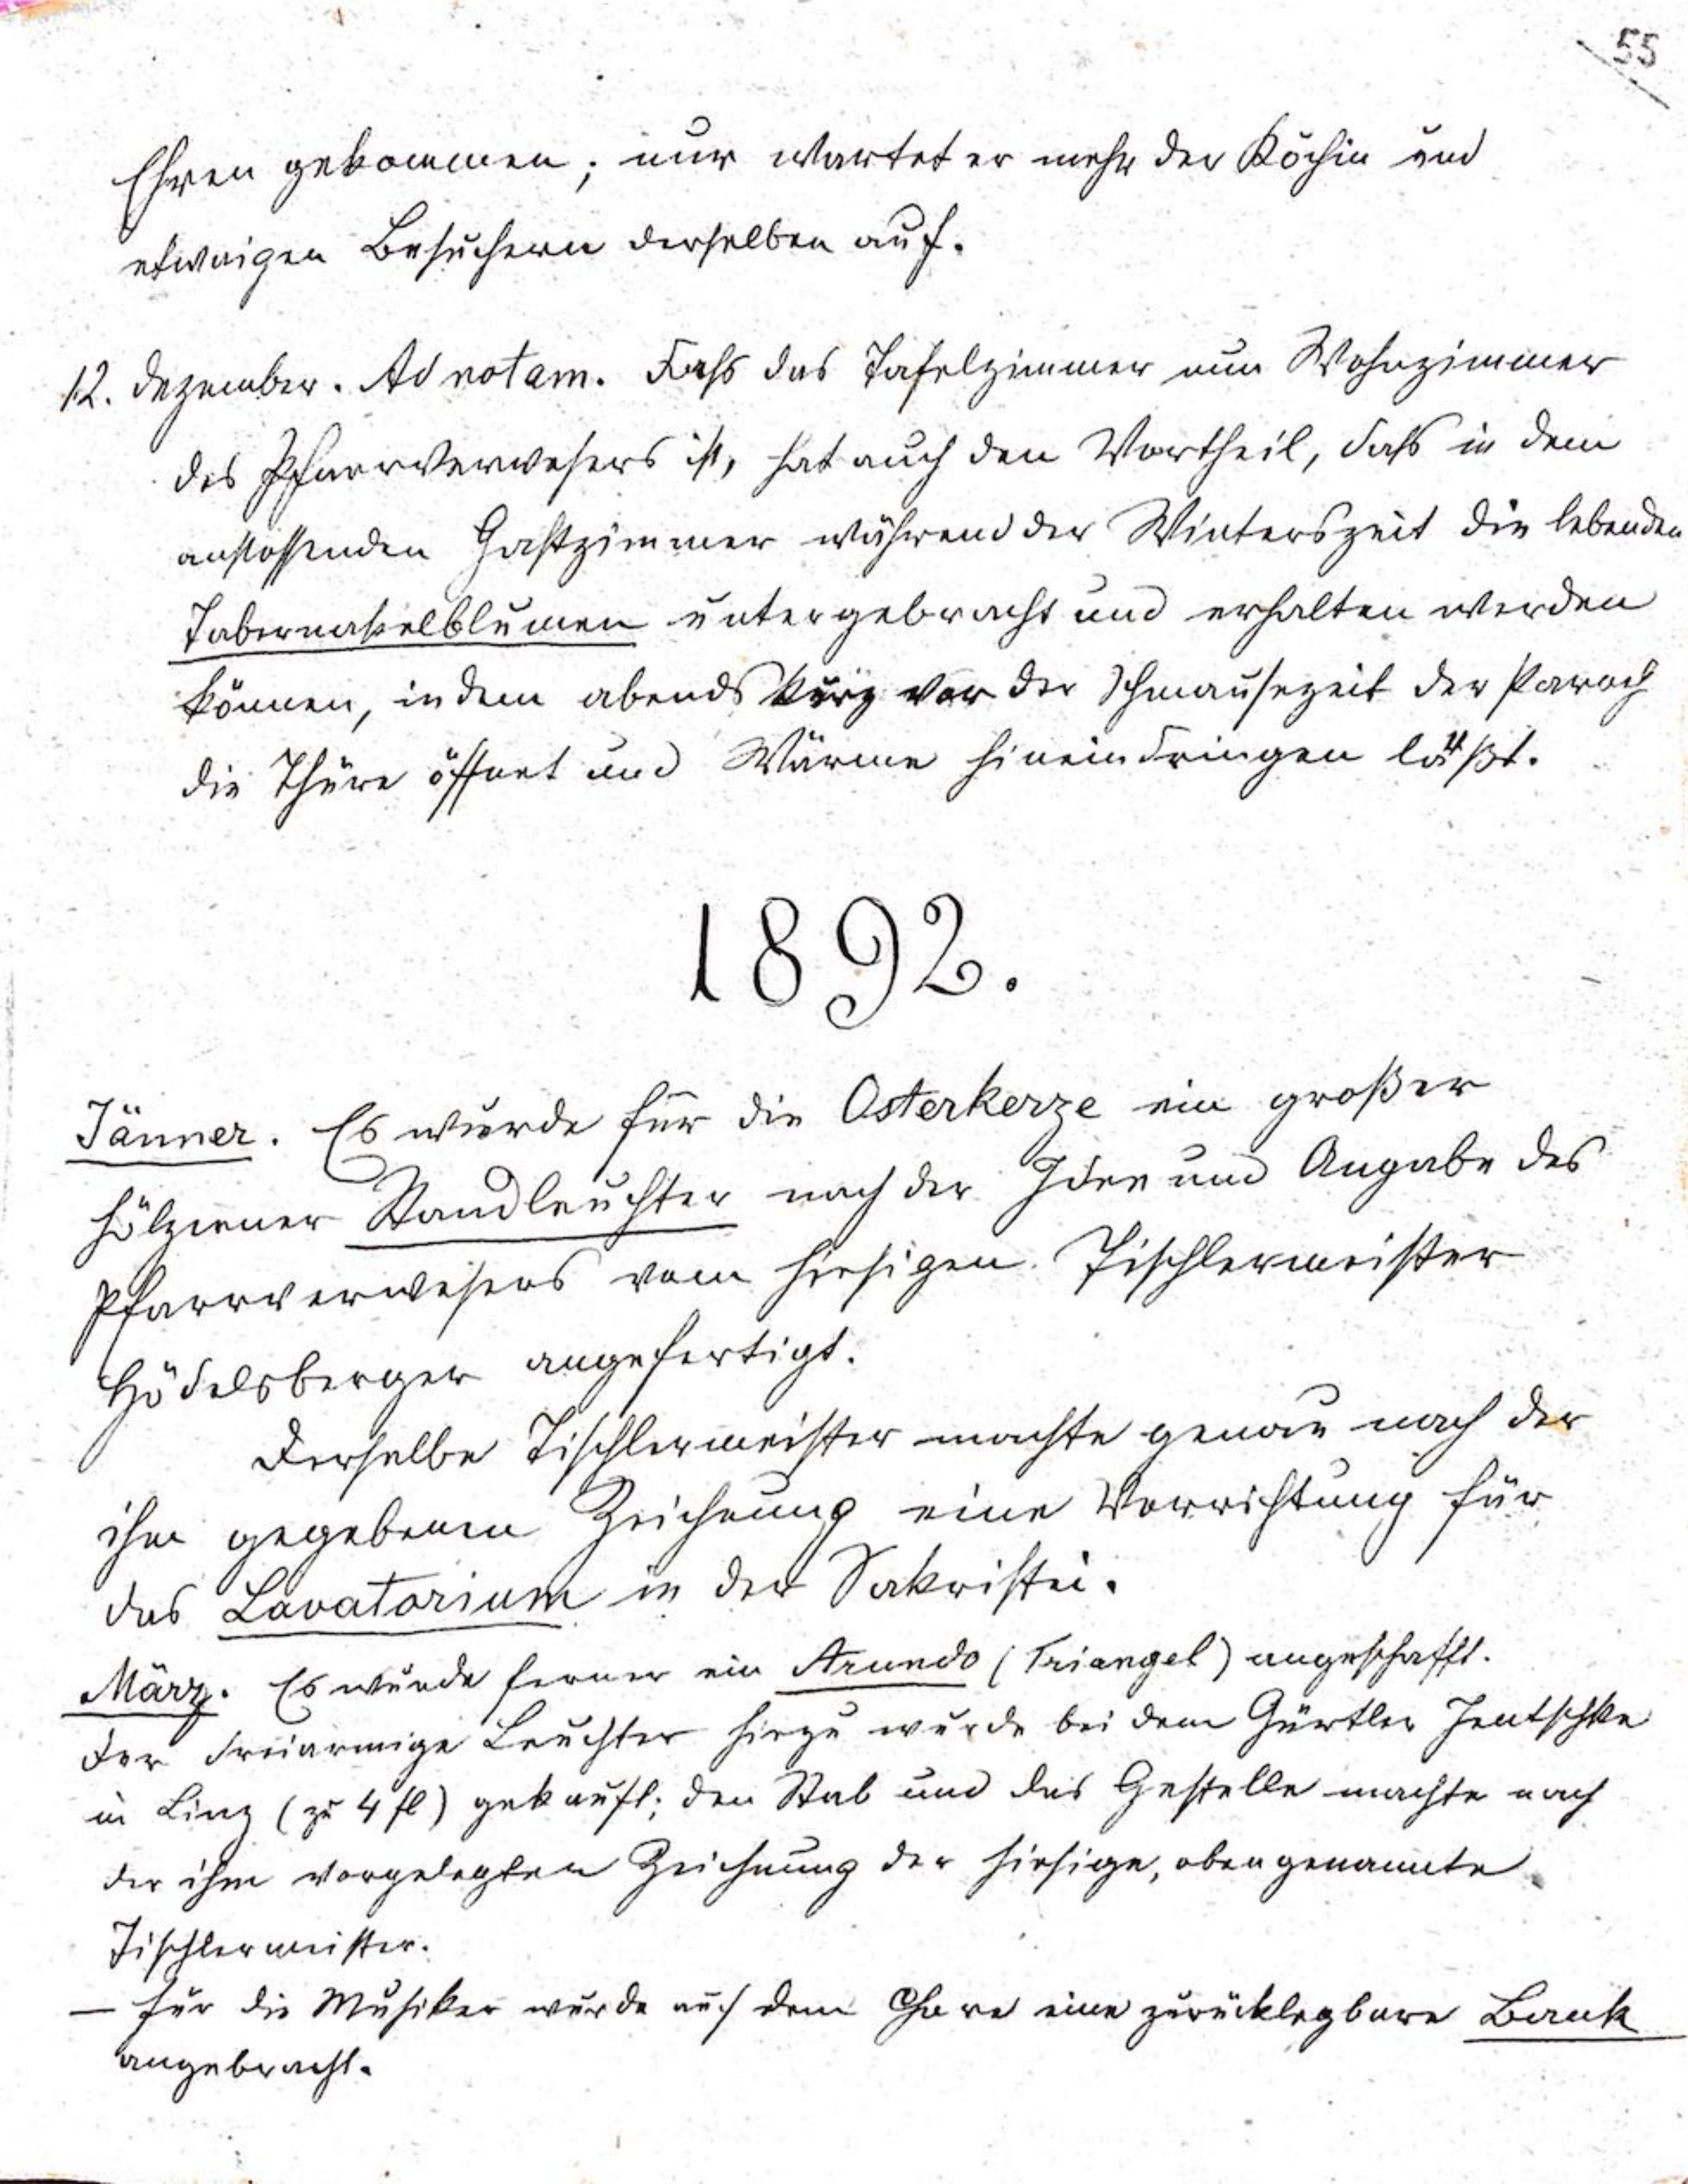 55
Ehren gekommen; nur wartet er mehr der Köchin und
etwaigen Besuchern derselben auf.
12. Dezember. Ad notam. Daß das Tafelzimmer nun Wohnzimmer
des Pfarrverwesers ist, hat auch den Vortheil, daß in dem
anstossenden Gastzimmer während der Winterszeit die lebenden
Tabernakelblumen untergebracht und erhalten werden
können, indem abends kurz vor der Schmausezeit der Paroch
die Thüre öffnet und Wärme hineindringen läßt.
1892.
Jänner. Es wurde für die Osterkerze ein großer
hölzerner Standleuchter nach der Idee und Angabe des
Pfarrverwesers vom hiesigen Tischlermeister
Hödelsberger angefertigt.
Derselbe Tischlermeister machte genau nach der
ihm gegebenen Zeichnung eine Vorrichtung für
das Lavatorium in der Sakristei.
März. Es wurde ferner ein Arundo (Triangel) angeschafft.
Der dreiarmige Leuchter hiezu wurde bei dem Gürtler Jentschke
in Linz (zu 4 fl) gekauft; den Stab und das Gestelle machte nach
der ihm vorgelegten Zeichnung der hiesige, obengenannte
Tischlermeister.
— Für die Musiker wurde auf dem Chore eine zurücklegbare Bank
angebracht.